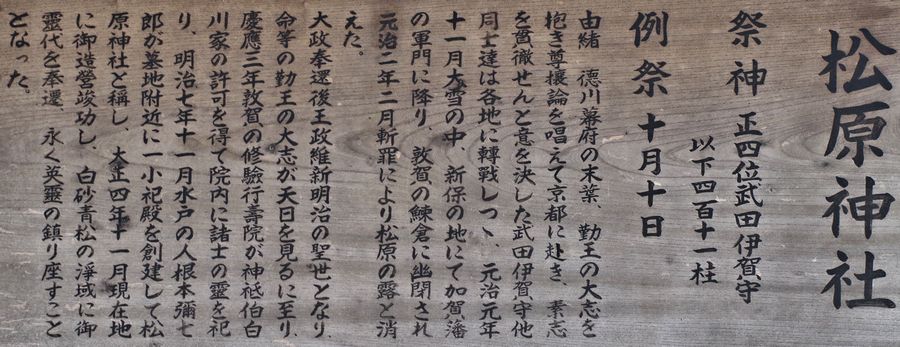 松原神社
祭神 正四位武田伊賀守
以下四百十一柱
例祭 十月十日
由緒 徳川幕府の末葉、勤王の大志を
抱き尊攘論を唱えて京都に赴き、素志
を貫徹せんと意を決した武田伊賀守他
同士達は各地に轉戦しつゝ、元治元年
十一月大雪の中、新保の地にて加賀藩
の軍門に降り、敦賀の鰊倉に幽閉され
元治二年二月斬罪により松原の露と消
えた。
大政奉還後王政維新明治の聖世となり、
命等の勤王の大志が天日を見るに至り、
慶應三年敦賀の修驗行壽院が神祇伯白
川家の許可を得て院内に諸士の靈を祀
り、明治七年十一月水戸の人根本彌七
郎が墓地附近に一小祀殿を創建して松
原神社と稱し、大正四年十一月現在地
に御造營竣功し、白砂青松の淨域に御
靈代を奉遷、永く英靈の鎮り座すこと
となった。